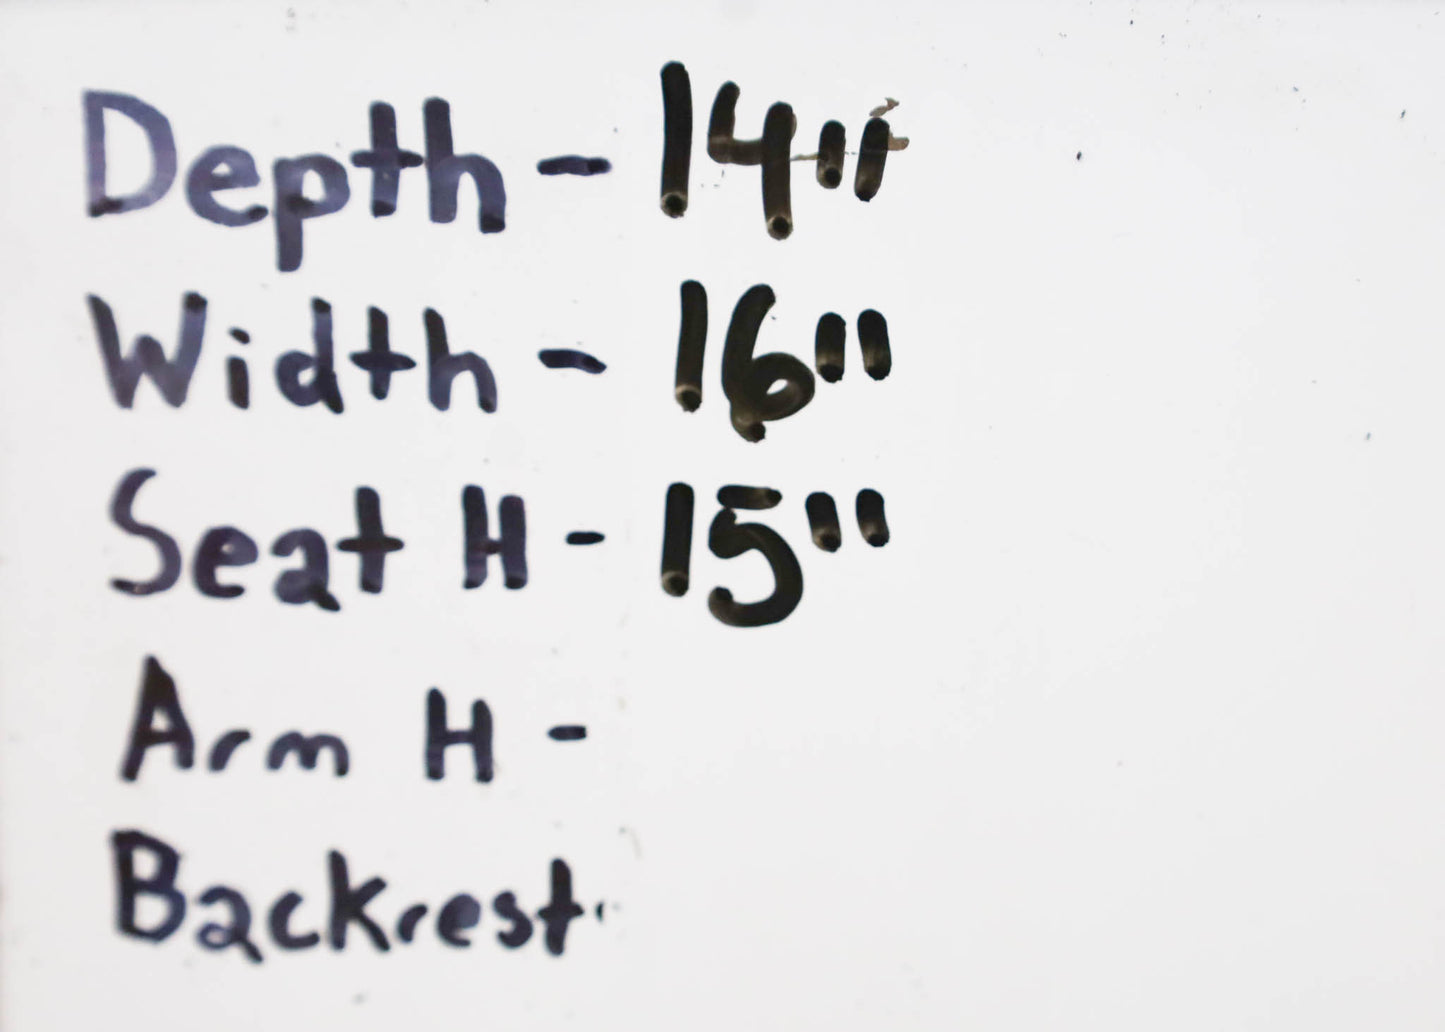 Depth - 14"
Width - 16"
Seat H - 15"
Arm H -
Backrest